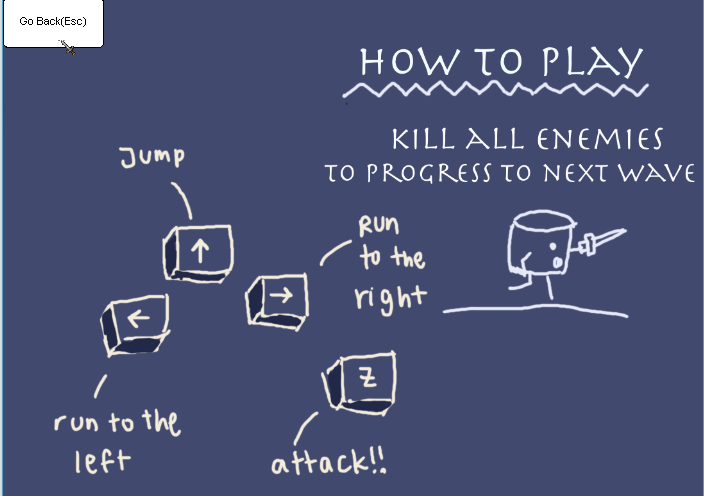 Go Back(Esc)
HOW TO PLAY
KILL ALL ENEMIES
TO PROGRESS TO NEXT WAVE
Jump
↑
Run
to the
right
→
←
run to the
left
Z
attack!!